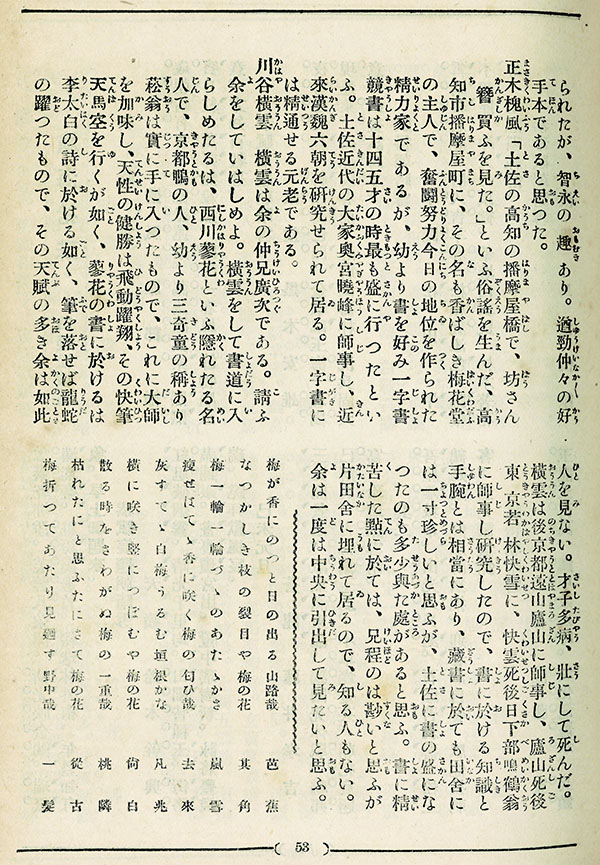 られたが、智永の趣あり。遒勁仲々の好
手本であると思つた。
正木槐風「土佐の高知の播摩屋橋で、坊さん
簪買ふを見た。」といふ俗謠を生んだ、高
知市播摩屋町に、その名も香ばしき梅花堂
の主人で、奮鬪努力今日の地位を作られた
精力家であるが、幼より書を好み一字書
競書は十四五才の時最も盛に行つたとい
ふ。土佐近代の大家奧宮曉峰に師事し、近
來漢魏六朝を研究せられて居る。一字書に
は精通せる元老である。
川谷橫雲 橫雲は余の仲兄廣次である。請ふ
余をしていはしめよ。橫雲をして書道に入
らしめたるは、西川蓼花といふ隱れたる名
人で、京都鴨の人、幼より三奇童の稱あり
菘翁は實に手に入つたもので、これに大師
を加味し、天性の健勝は飛動躍翔、その快筆
天馬空を行くが如く、蓼花の書に於けるは
李太白の詩に於ける如く、筆を落せば龍蛇
の躍つたもので、その天賦の多き余は如此
人を見ない。才子多病、壯にして死んだ。
橫雲は後京都遠山廬山に師事し、廬山死後
東京若林快雪に、快雲死後日下部鳴鶴翁
に師事し研究したので、書に於ける知識と
手腕とは相當にあり、藏書に於ても田舍に
は一寸珍しいと思ふが、土佐に書の盛にな
つたのも多少與た處があると思ふ。書に精
苦した點に於ては、兄程のは尠いと思ふが
片田舍に埋れて居るので、知る人もない。
余は一度は中央に引出して見たいと思ふ。
梅が香にのつと日の出る山路哉 芭蕉
なつかしき枝の裂目や梅の花 其角
梅一輪一輪づゝのあたゝかさ 嵐雪
瘦せばてゝ香に咲く梅の匂ひ哉 去來
灰すてゝ白梅うるむ垣根かな 凡兆
橫に咲き竪につぼむや梅の花 尙白
散る時をさわがぬ梅の一重哉 桃隣
枯れたにと思ふたにさて梅の花 從古
梅折つてあたり見廻す野中哉 一髮
53